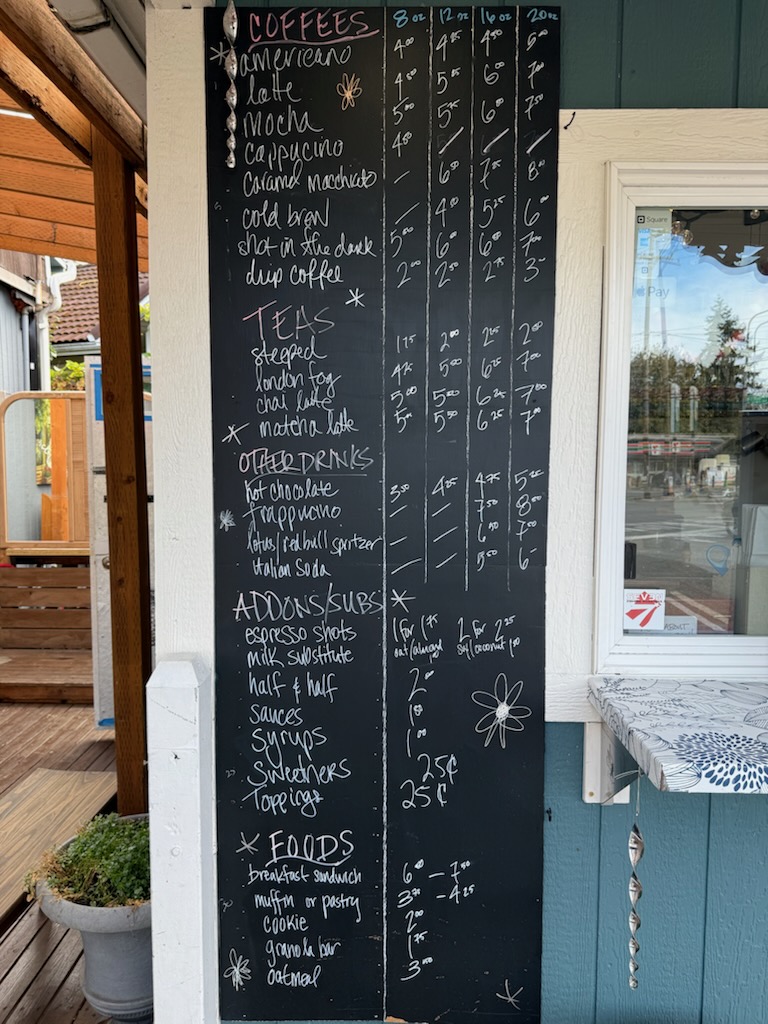 COFFEES 8 oz 12 oz 16 oz 20 oz
americano 4.00 4.25 4.50 5.00
latte 4.50 5.05 6.00 7.00
mocha 5.00 5.75 6.00 7.50
cappucino 4.50 / / /
caramel macchiato - 6.00 7.25 8.00
cold brew - 4.00 5.25 6.00
shot in the dark 5.00 6.00 6.00 7.00
drip coffee 2.00 2.50 2.75 3-
TEAS
steeped 1.75 2.00 2.25 2.50
london fog 4.75 5.00 6.25 7.00
chai latte 5.00 5.50 6.25 7.00
matcha latte 5.50 6.25 7.00
OTHER DRINKS
hot chocolate 3.50 4.25 4.75 5.25
frappucino - - 7.50 8.00
lotus/redbull spritzer - - 6.50 7.00
italian soda - - 5.50 6-
ADDONS/SUBS
espresso shots 1 for 1.75 2 for 2.25
milk substitute oat/almond soy/coconut 1.00
half & half 2.00
sauces 1.50
syrups 1.00
sweetners 25¢
Toppings 25¢
FOODS
breakfast sandwich 6.00 - 7.50
muffin or pastry 3.75 - 4.25
cookie 2.00
granola bar 1.75
oatmeal 3.50
Square
Pay